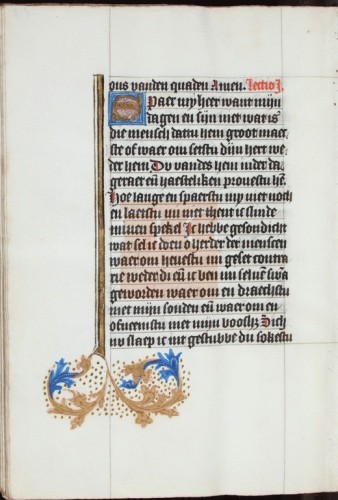 ons vanden quaden Amen. Lectio j.
Spaer my heer want mijn
dagen en sijn niet wat is
die mensch dattu hem groot maec
ste of waer om setstu dijn hert we
der hem. Du vandes hem inder da
geraet en̄ haesteliken prouestu hē.
Hoe lange en spaerstu my niet noch
en laetstu mi niet thent ic slinde
minen spekel Ic hebbe gesondicht
wat sel ic doen o herder der menscen
waer om heuestu mi geset contra
rie weder di en̄ ic ben mi seluē swaer
geworden waer om en draechstu
niet mijn sonden en̄ waer om en
ofneemstu niet mijn boosh; Sich
nu slaep ic int gestubbe du soekestu